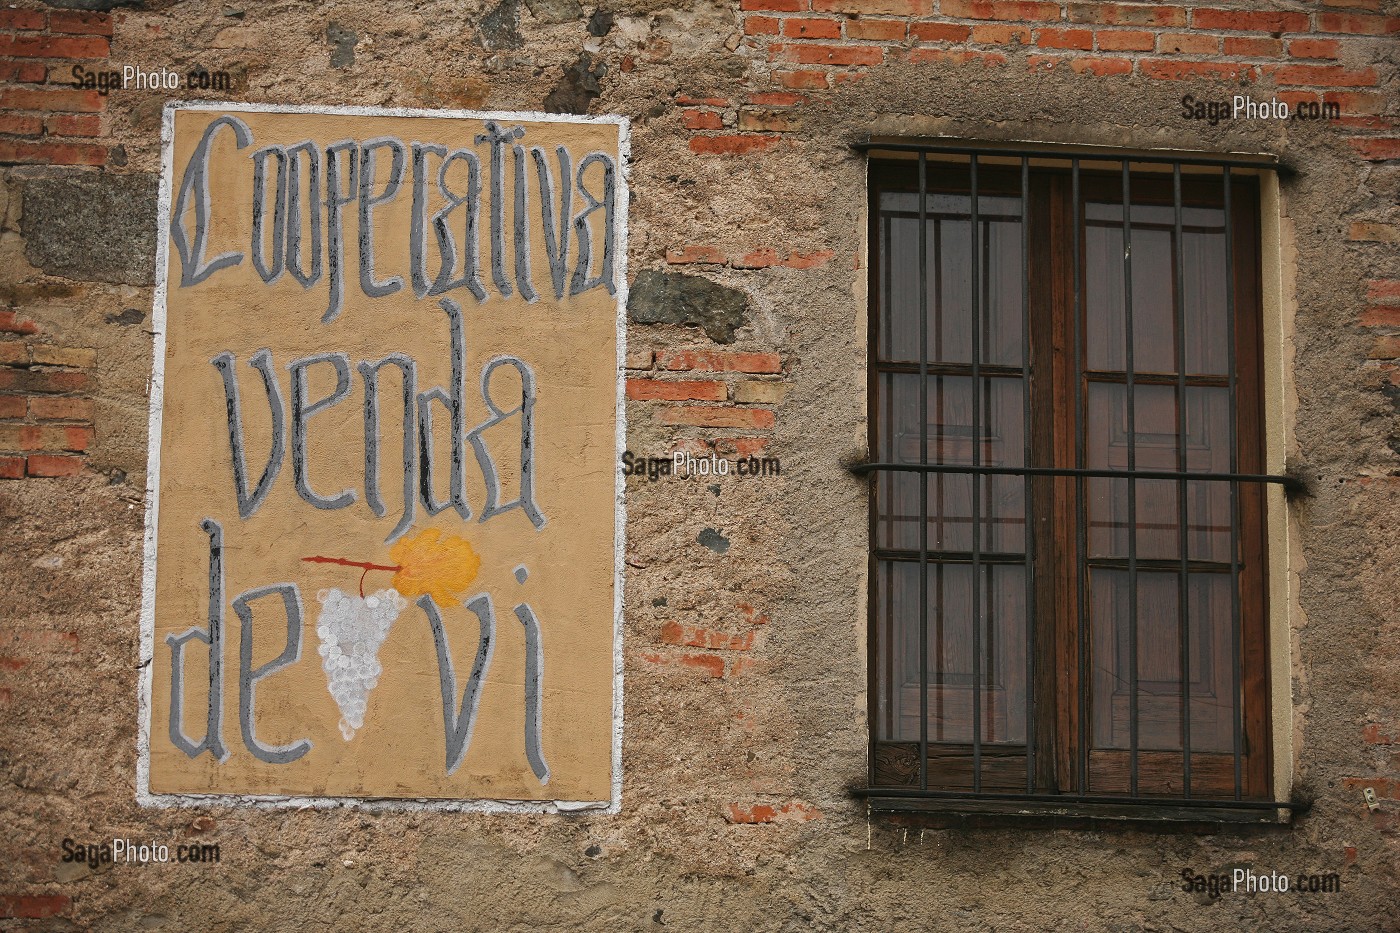 Cooperativa
venda
de vi
SagaPhoto.com
SagaPhoto.com
SagaPhoto.com
SagaPhoto.com
SagaPhoto.com